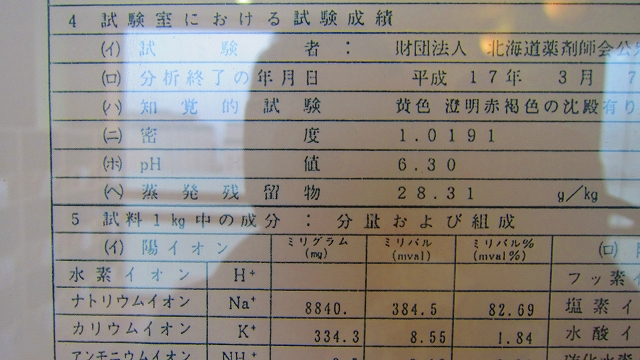 4 試験室における試験成績
(イ) 試験者： 財団法人 北海道薬剤師会公
(ロ) 分析終了の年月日 平成 17年 3月 7
(ハ) 知覚的試験 黄色 澄明赤褐色の沈殿有り
(ニ) 密度 1.0191
(ホ) pH値 6.30
(ヘ) 蒸発残留物 28.31 g/kg
5 試料1kg中の成分： 分量および組成
(イ) 陽イオン ミリグラム (mg) ミリバル (mval) ミリバル% (mval%) (ロ)
水素イオン H+ フッ素
ナトリウムイオン Na+ 8840. 384.5 82.69 塩素イ
カリウムイオン K+ 334.3 8.55 1.84 水酸イ
アンモニウムイオン NH+